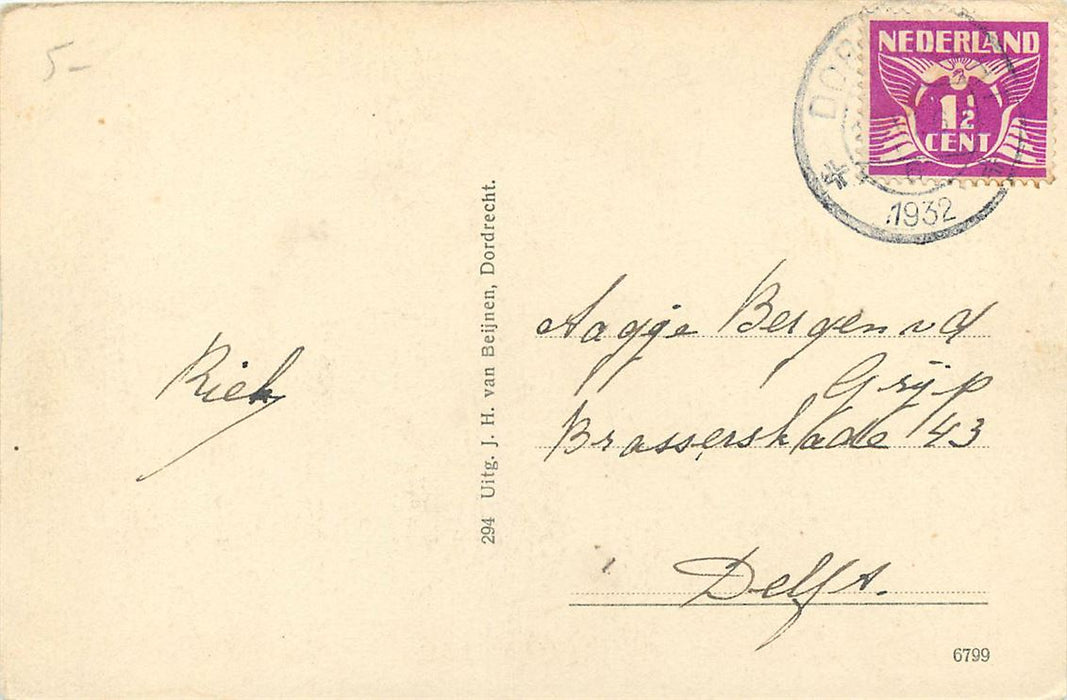 5-
NEDERLAND
1½
CENT
DOR
1932
Riek
294 Uitg. J. H. van Beijnen, Dordrecht.
Aagje Bergen vd
Grijp
Brasserskade 43
Delft.
6799